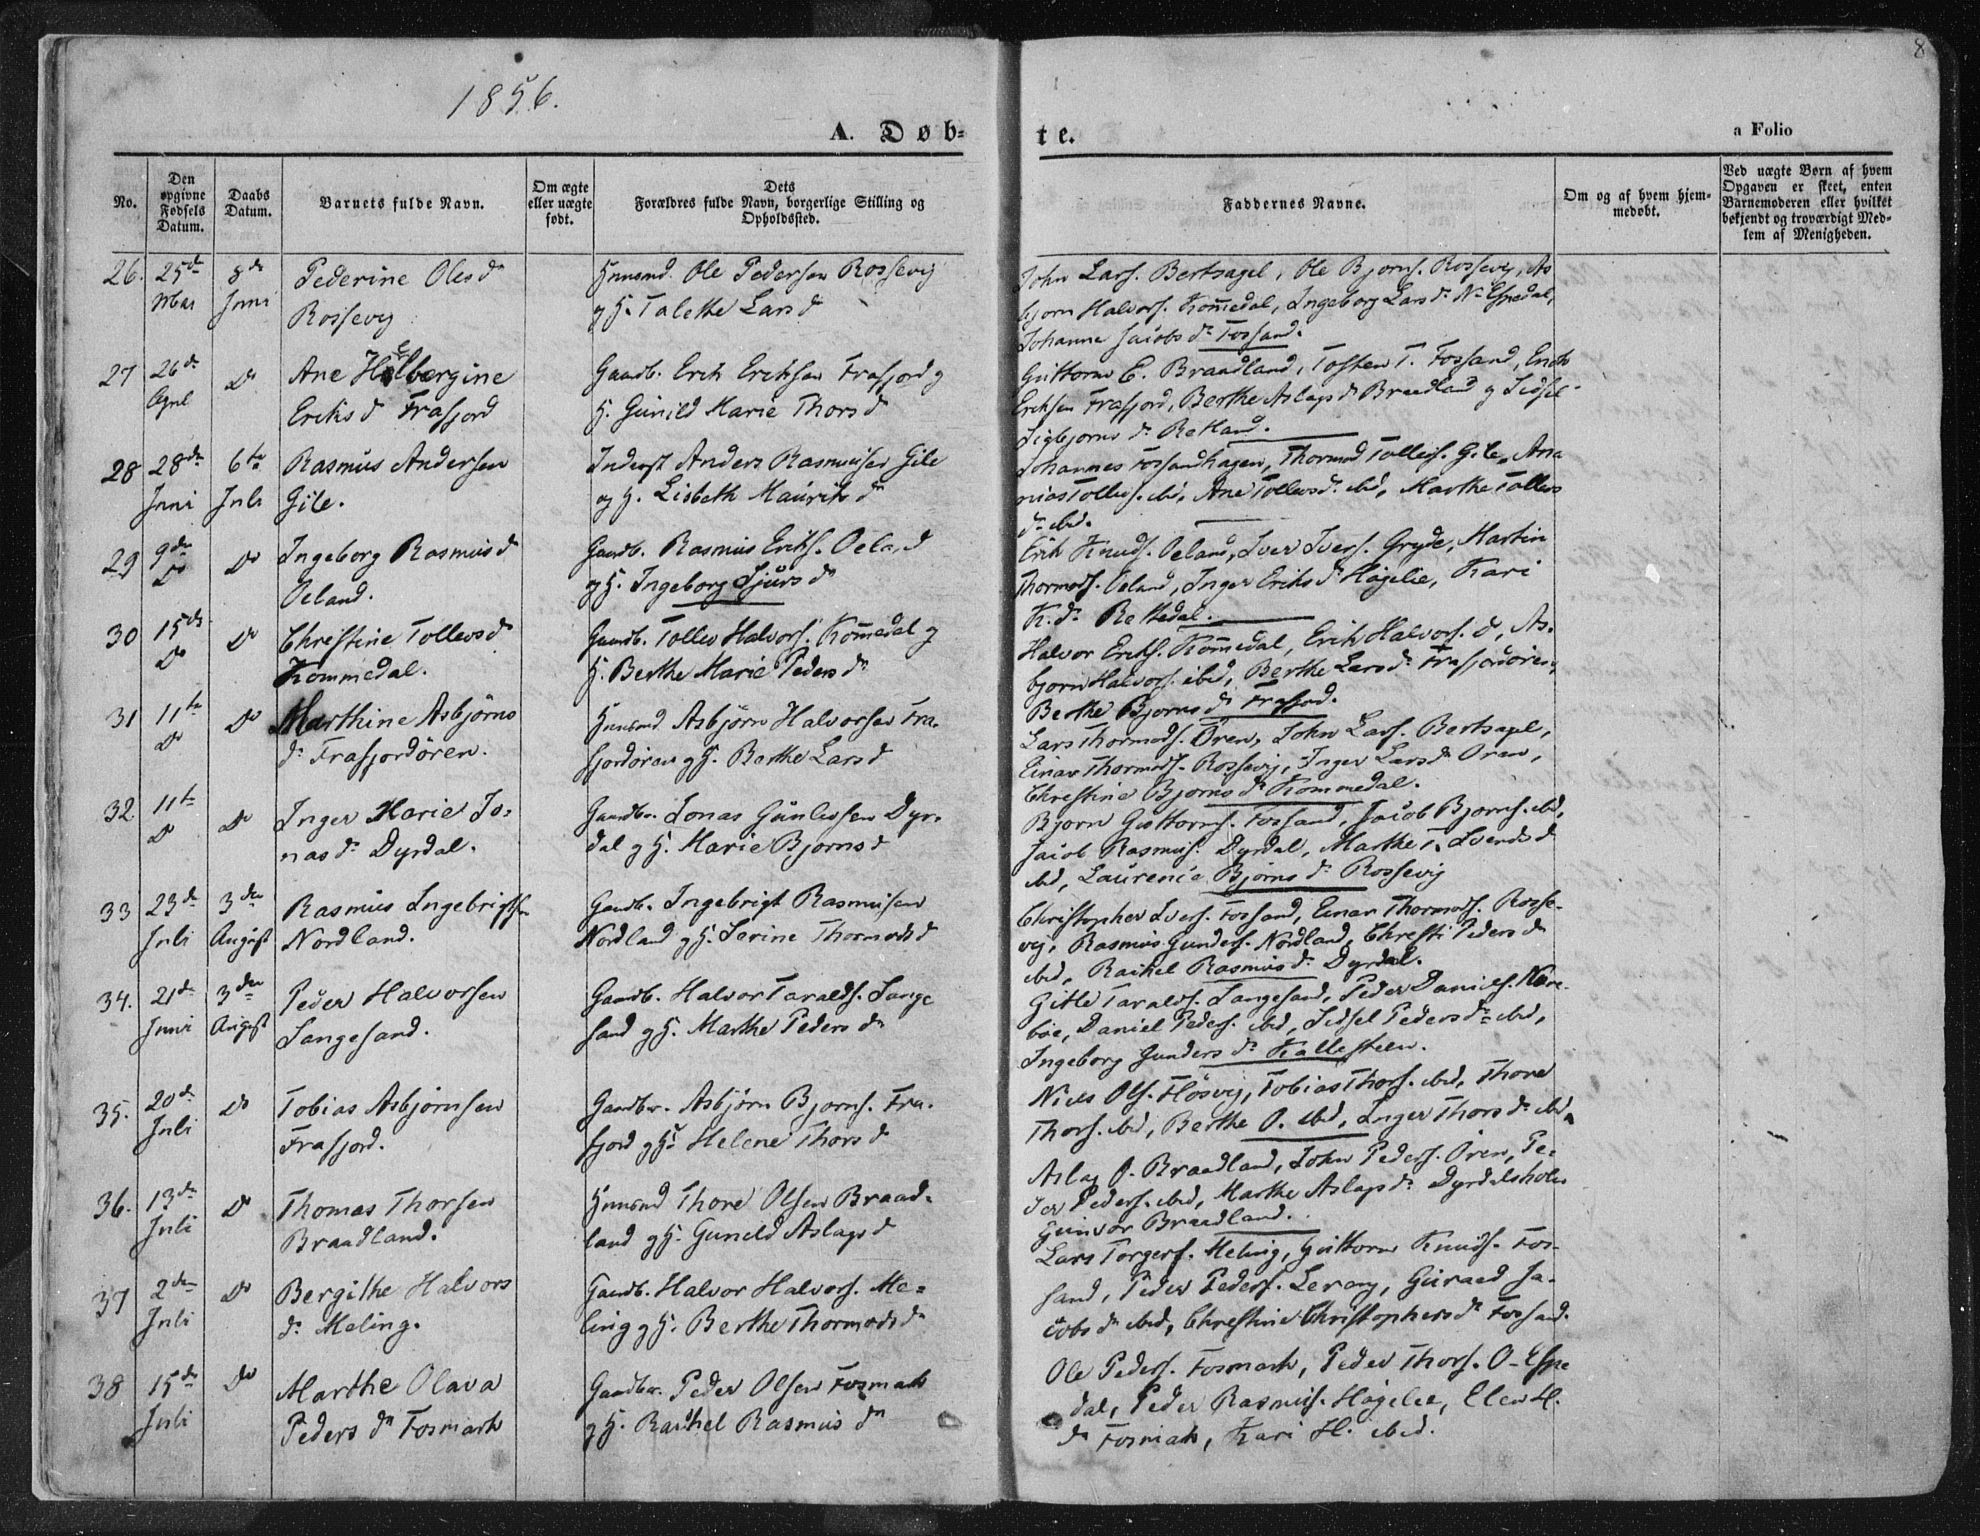 8
1856.
A. Døb=
te.
a Folio
No.
Den
opgivne
Fødsels
Datum.
Daabs
Datum.
Barnets fulde Navn.
Om ægte
eller uægte
født.
Dets
Forældres fulde Navn, borgerlige Stilling og
Opholdssted.
Faddernes Navne.
Om og af hvem hjem-
medøbt.
Ved uægte Børn af hvem
Opgaven er skeet, enten
Barnemoderen eller hvilket
bekjendt og troværdigt Med-
lem af Menigheden.
26.
25de
Mai
8de
Juni
Pederine Olesd
Rossevig
Huusmd Ole Pedersen Rossevig
og H. Talette Larsd
John Lars. Bertsagel, Ole Bjorns. Rossevig, As
bjorn Halvors. Kommedal, Ingeborg Larsdr. N. Espedal,
Johanne Jacobsdr. Fossand.
27
26de
April
Do
Ane Helbergine
Eriksd Frafjord
Gaardb. Erik Eriksen Frafjord og
H. Gunild Marie Thorsd
Guttorm E. Braadland, Tosten T. Fossand, Erik
Eriksen Frafjord, Berthe Aslagsd Braadland og Sidsel
Sigbjorns dr. Retland.
28
28de
Juni
6te
Juli
Rasmus Andersen
Gile.
Inderst Anders Rasmusen Gile
og H. Lisbeth Mauritsdr
Johannes Fossandhagen, Thormod Tollefs. Gile, Ana
nias Tollevs. ibid, Ane Tollevsd. ibid, Marthe Tollevs
dr. ibid.
29
9de
Do
Do
Ingeborg Rasmusd
Oeland.
Gaardb. Rasmus Eriks. Oeland
og H. Ingeborg Sjursd
Erik Knuds. Oeland, Iver Ivers. Gryde, Martin
Thormods. Oeland, Inger Eriksdr. Högelie, Kari
K.dr. Rettedal.
30
15de
Do
Do
Christine Tollevsd
Kommedal.
Gaardb. Tollev Halvors. Kommedal og
H. Berthe Marie Pedersdr
Halvor Eriks. Kommedal, Erik Halvors. D, As-
bjorn Halvors. ibid, Berthe Larsdr. Frafjordören,
Berthe Bjornsdr. Frafjord.
31
11te
Do
Do
Marthine Asbjørns
dr. Frafjordören.
Huusmd Asbjørn Halvorsen Fra-
fjordören og H. Berthe Larsd
Lars Thormods. Ören, John Lars. Bertsagel,
Einar Thormods. Rossevig, Inger Larsdr Ören,
Christine Bjornsdr Kommedal.
32
11te
Do
Do
Inger Marie Jo-
nasdr. Dyrdal.
Gaardbr. Jonas Gunlevsen Dyr-
dal og H. Marie Bjornsd
Bjorn Guttorms. Fossand, Jacob Bjorns. ibid,
Jacob Rasmus. Dyrdal, Marthe T. Svendsd
ibid, Laurenia Bjørnsdr. Rossevig
33
23de
Juli
3die
August
Rasmus Ingebrigtsen
Nordland.
Gaardb. Ingebrigt Rasmusen
Nordland og H. Serine Thormodsd
Christopher Ivers. Fossand, Einar Thormods. Rosse-
vig, Rasmus Gunders. Nordland, Christi Pedersdr
ibid, Rachel Rasmusdr. Dyrdal.
34.
21de
Juni
3die
August
Peder Halvorsen
Langesand.
Gaardb. Halvor Taralds. Lange
sand og H. Marthe Pedersdr
Gitle Taralds. Langesand, Peder Daniels. Nære-
böe, Daniel Peders. ibid, Sidsel Pedersdr. ibid,
Ingeborg Gundersdr. Kallesteen.
35.
20de
Juli
Do
Tobias Asbjørnsen
Frafjord.
Gaardbr. Asbjørn Bjorns. Fra-
fjord og H. Helene Thorsd
Niels Ols. Flösvig, Tobias Thors. ibid, Thore
Thors. ibid, Berthe O. ibid, Inger Thorsdr ibid
36.
13de
Juli
Do
Thomas Thorsen
Braadland.
Huusmd Thore Olsen Braad-
land og H. Guneld Aslagsd
Aslag O. Braadland, John Peders. Ören, Pe-
der Peders. ibid, Marthe Aslagsdr. Dyrdalsholen
Gunvor Braadland.
37
2den
Juli
Do
Bergithe Halvors
dr. Meling.
Gaardb. Halvor Halvors. Me-
ling og H. Berthe Thormodsdr
Lars Torgers. Meling, Guttorm Knuds. Fos-
sand, Peder Peders. Lerang, Guraad Ja-
cobsdr ibid, Christine Christophersdr Fossand.
38
15de
Juli
Do
Marthe Olava
Pedersdr Fosmark
Gaardbr. Peder Olsen Fosmark
og H. Rachel Rasmusdr
Ole Peders. Fosmark, Peder Thors. O-Espe
dal, Peder Rasmus. Högelie, Elen H.
dr Fosmark, Kari H. ibid.